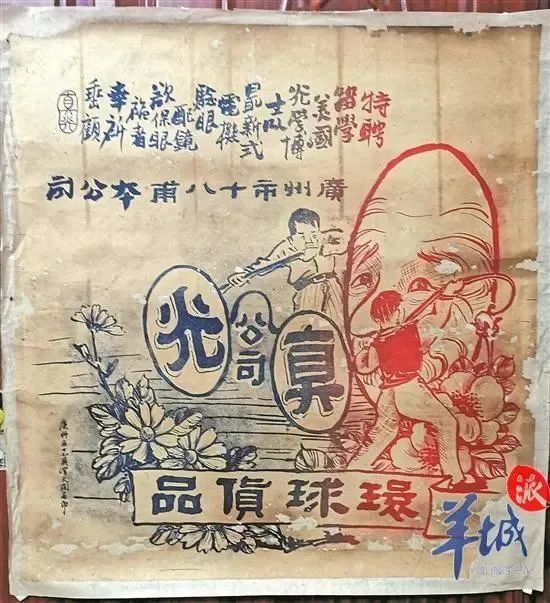 特聘
留學
美國
光學博
士以
最新式
電機
驗眼
配鏡
欲保眼
福者
幸祈
垂顧
廣州市十八甫本公司
真光
公司
環球貨品
羊城派
YOUNG PAI